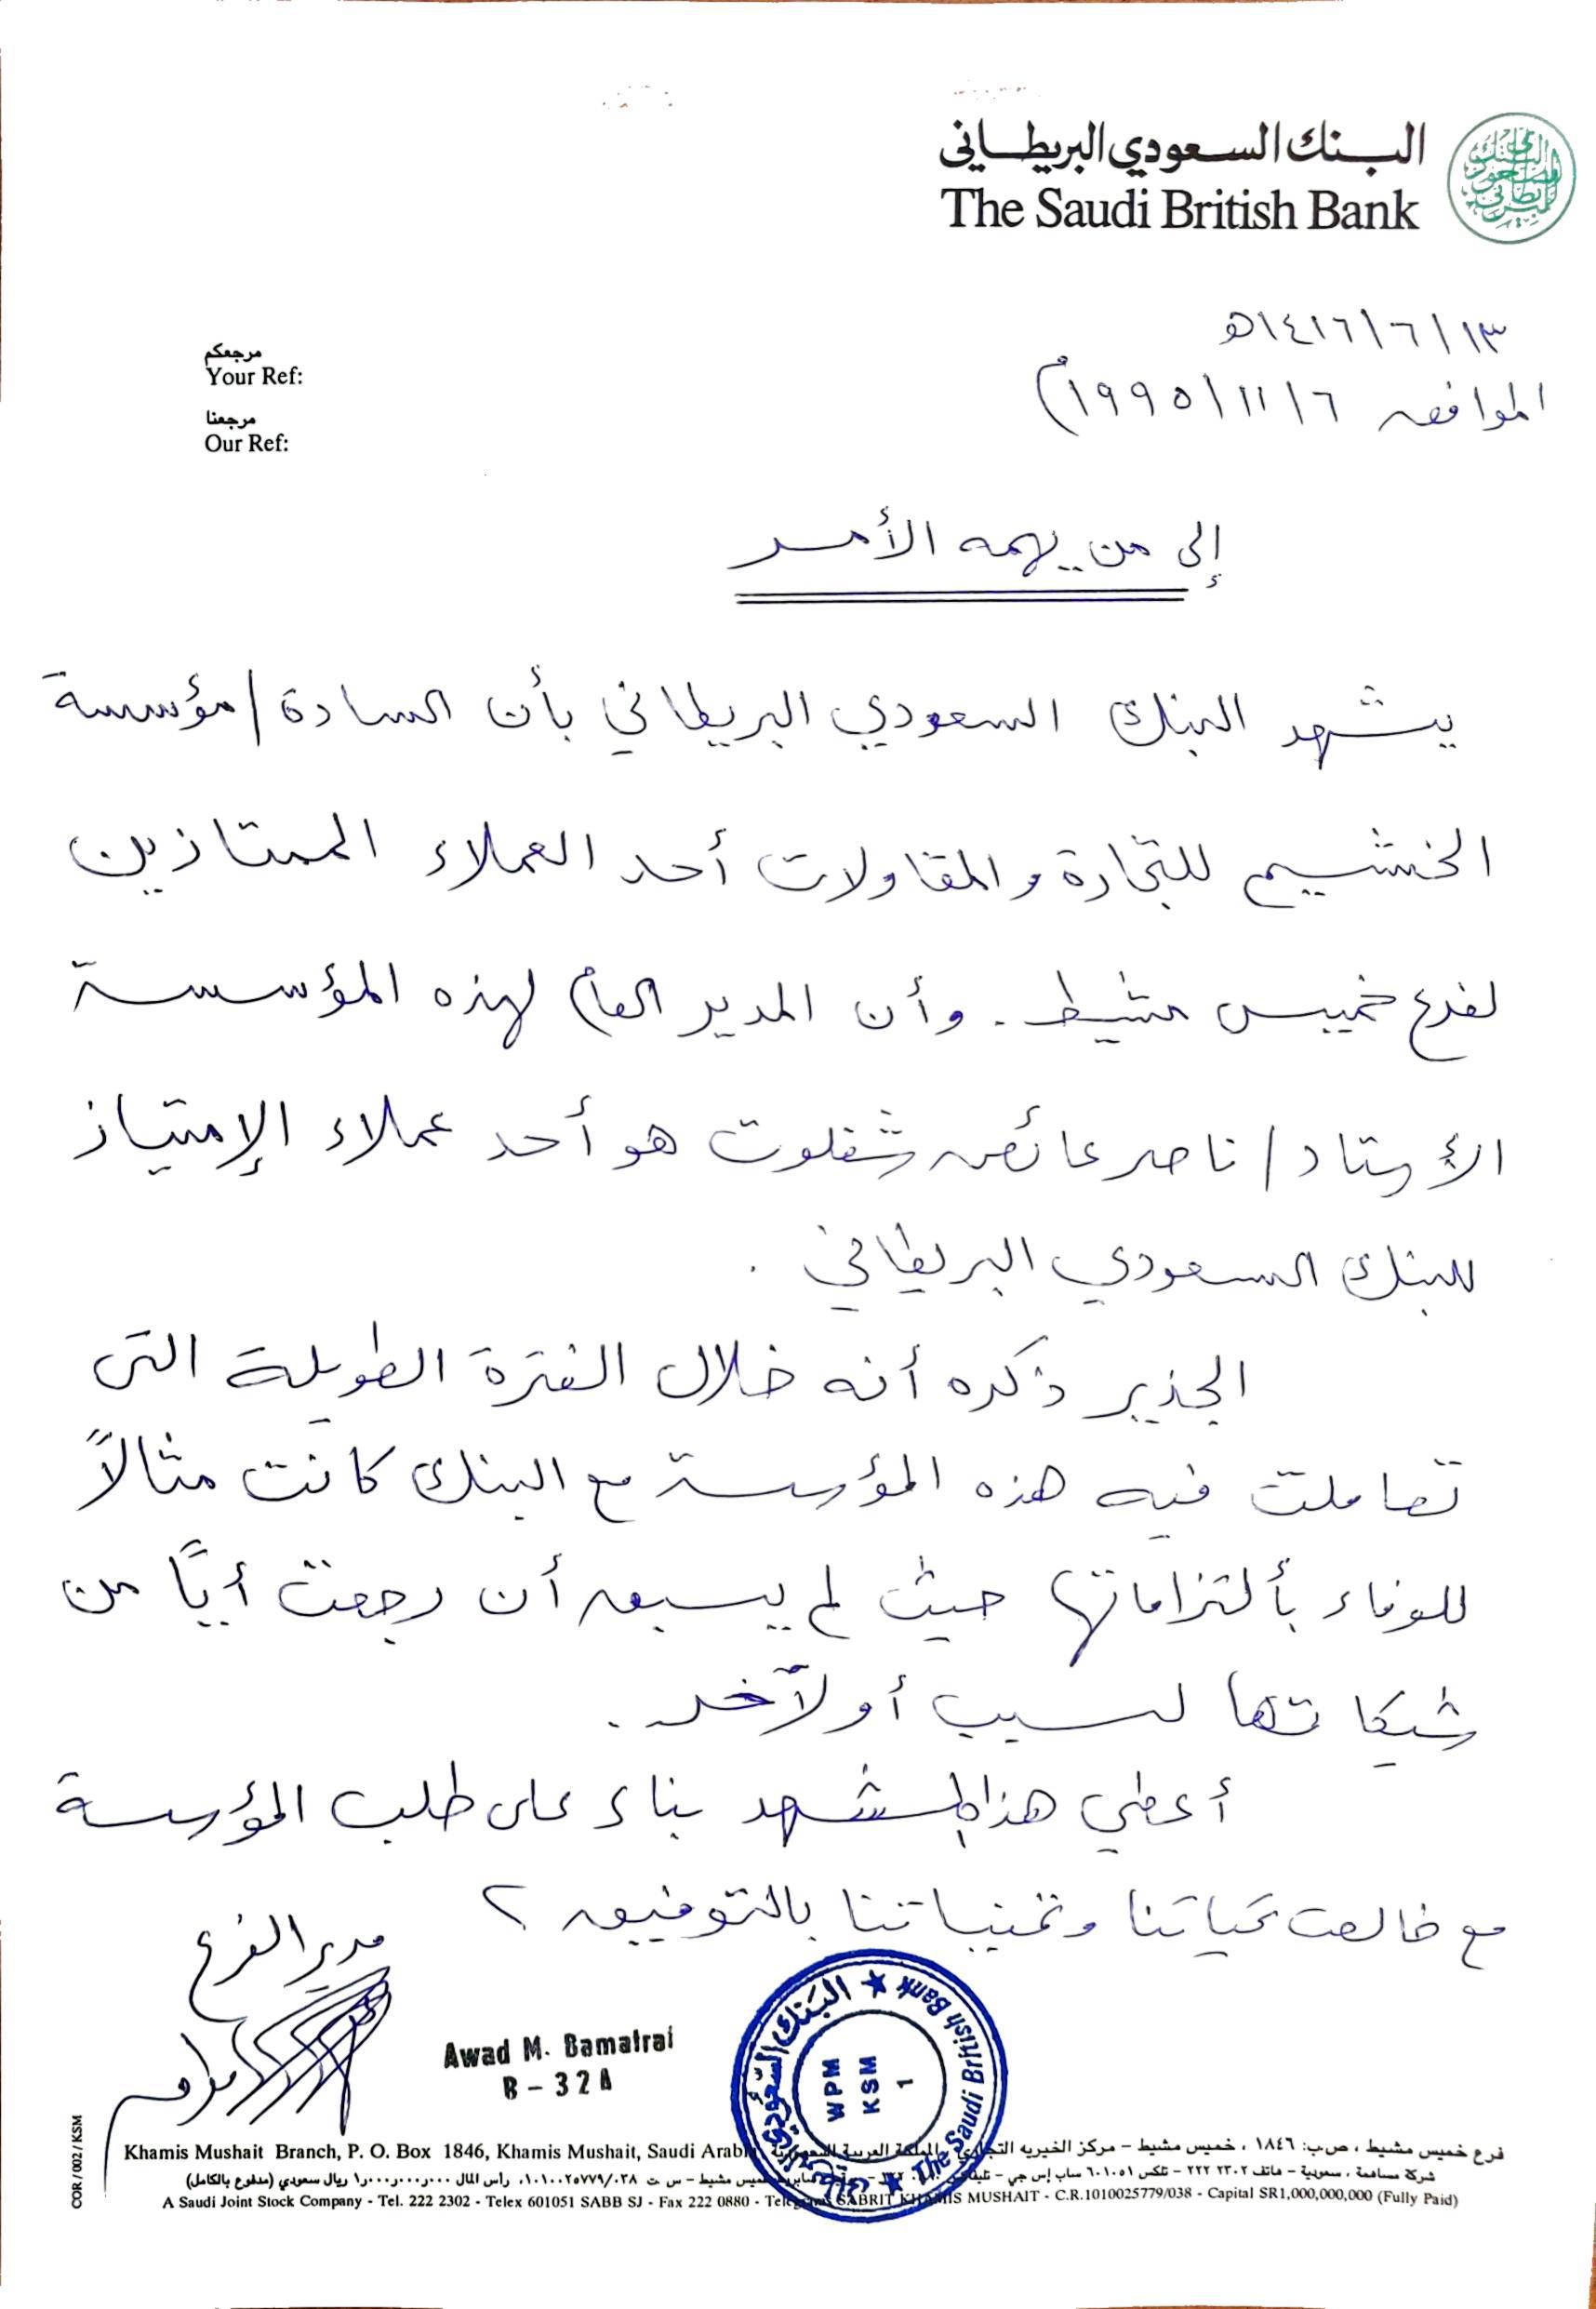 البنك السعودي البريطاني
The Saudi British Bank
١٤١٦/٦/١٣هـ
الموافق ١٩٩٥/١١/٦م
مرجعكم
Your Ref:
مرجعنا
Our Ref:
إلى من يهمه الأمر
يشهد البنك السعودي البريطاني بأن السادة / مؤسسة
الخشيم للتجارة والمقاولات أحد العملاء الممتازين
لفرع خميس مشيط . وأن المدير العام لهذه المؤسسة
الأستاد / ناصر عائض شفلوت هو أحد عملاء الإمتياز
للبنك السعودي البريطاني .
الجذير ذكره أنه خلال الفترة الطويلة التى
تعاملت فيه هذه المؤسسة مع البنك كانت مثالاً
للوفاء بألتزاماتها حيث لم يسبق أن رجعت أيًا من
شيكاتها لسبب أو لآخر .
أعطي هذا المشهد بناء على طلب المؤسسة
مع خالص تحياتنا وتمنياتنا بالتوفيق ،
مدير الفرع
Awad M. Bamatraf
B - 32A
البنك السعودي البريطاني ★ The Saudi British Bank ★
WPM
KSM
1
فرع خميس مشيط ، ص.ب: ١٨٤٦ ، خميس مشيط – مركز الخيريه التجاري المملكة العربية السعودية
Khamis Mushait Branch, P. O. Box 1846, Khamis Mushait, Saudi Arabia
شركة مساهمة ، سعودية – هاتف ٢٢٢ ٢٣٠٢ – تلكس ٦٠١٠٥١ ساب إس جي – خميس مشيط – س ت ١٠١٠٠٢٥٧٧٩/٠٣٨ ، رأس المال ١٫٠٠٠٫٠٠٠٫٠٠٠ ريال سعودي (مدفوع بالكامل)
A Saudi Joint Stock Company - Tel. 222 2302 - Telex 601051 SABB SJ - Fax 222 0880 - Telegrams SABRIT KHAMIS MUSHAIT - C.R.1010025779/038 - Capital SR1,000,000,000 (Fully Paid)
COR / 002 / KSM